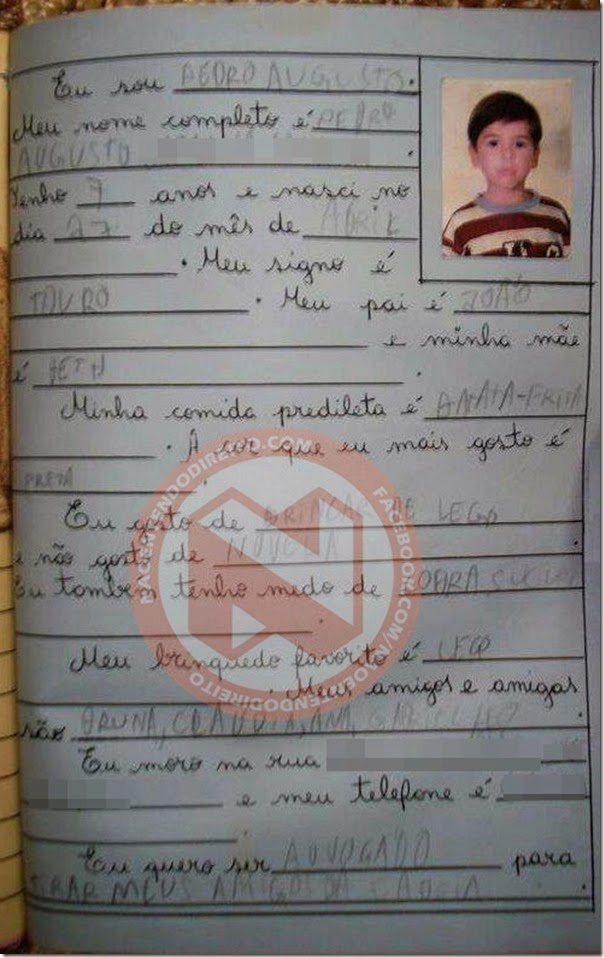 Eu sou PEDRO AUGUSTO.
Meu nome completo é PEDRO
AUGUSTO
Tenho 7 anos e nasci no
dia 27 do mês de ABRIL
. Meu signo é
TAURO. Meu pai é JOÃO
e minha mãe
é BETH.
Minha comida predileta é BATATA-FRITA
. A cor que eu mais gosto é
PRETA.
Eu gosto de BRINCAR DE LEGO.
e não gosto de NOVELA
Eu também tenho medo de
.
Meu brinquedo favorito é LEGO
. Meus amigos e amigas
são BRUNA, CLAUDIA, ANA,
Eu moro na rua
e meu telefone é
.
Eu quero ser ADVOGADO para
TIRAR MEUS AMIGOS DA CADEIA.
NAOENTENDODIREITO.COM
FACEBOOK.COM/NAOENTENDODIREITO